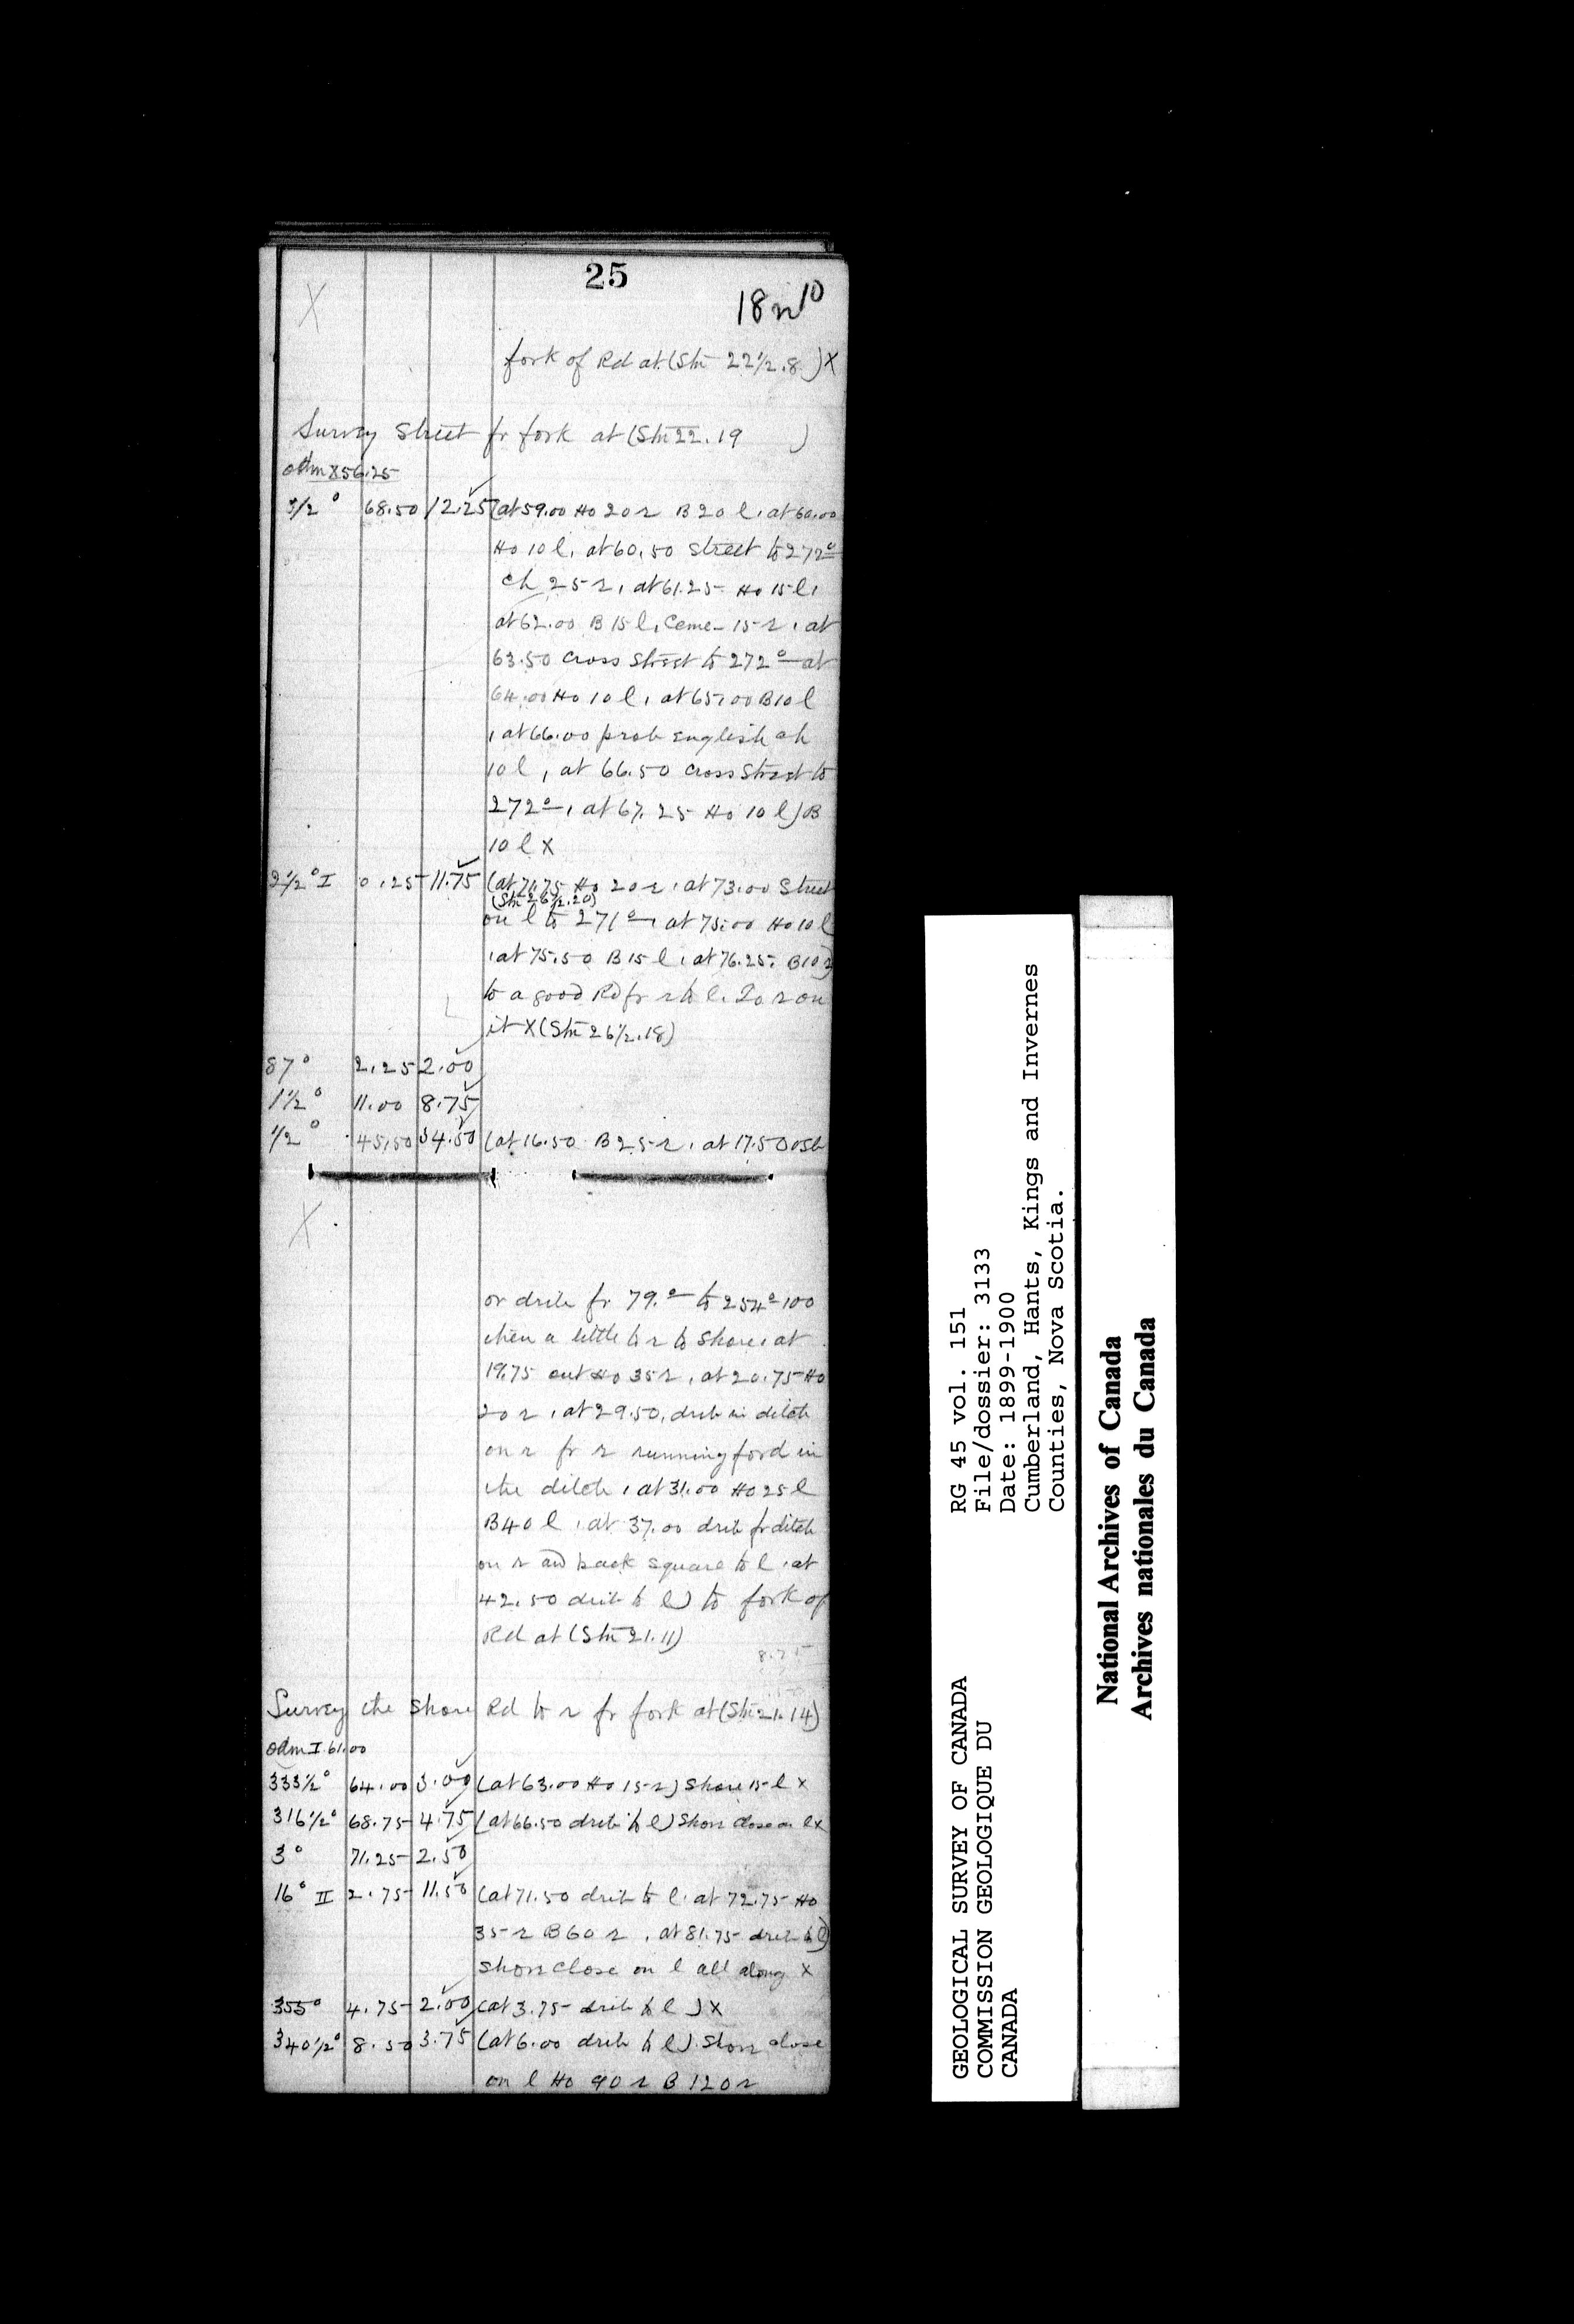 25
18 n 10
fork of Rd at (Stn 22 1/2.8) X
Survey Street fr fork at (Stn 22.19 )
odm X 56.25
3 1/2° 68.50 12.25 (at 59.00 Ho 20 r B 20 l, at 60.00
Ho 10 l, at 60.50 street to 272°
ch 25 r, at 61.25 Ho 15 l,
at 62.00 B 15 l, Ceme- 15 r, at
63.50 cross street to 272° at
64.00 Ho 10 l, at 65.00 B 10 l
, at 66.00 prob english ch
10 l, at 66.50 cross street to
272°, at 67.25 Ho 10 l) B
10 l X
2 1/2° I 0.25 11.75 (at 71.75 Ho 20 r, at 73.00 Street
(Stn 26 1/2.20)
on l to 271°, at 75.00 Ho 10 l
, at 75.50 B 15 l, at 76.25 B 10 r)
to a good Rd fr r to l. To r on
it X (Stn 26 1/2.18)
87° 2.25 2.00
1 1/2° 11.00 8.75
1/2° 45.50 34.50 (at 16.50 B 25 r, at 17.50
or drib fr 79° to 254° 100
then a little to r to shore, at
19.75 out Ho 35 r, at 20.75 Ho
20 r, at 29.50, drib in ditch
on r fr r running ford in
the ditch, at 31.00 Ho 25 l
B 40 l, at 37.00 drib fr ditch
on r and back square to l, at
42.50 drib to l) to fork of
Rd at (Stn 21.11)
8.75
Survey the Shore Rd to r fr fork at (Stn 21.14)
odm I 61.00
333 1/2° 64.00 3.00 (at 63.00 Ho 15 r) Shore 15 l X
316 1/2° 68.75 4.75 (at 66.50 drib to l) Shore close on l X
3° 71.25 2.50
16° II 2.75 11.50 (at 71.50 drib to l, at 72.75 Ho
35 r B 60 r, at 81.75 drib to l)
Shore close on l all along X
355° 4.75 2.00 (at 3.75 drib to l) X
340 1/2° 8.50 3.75 (at 6.00 drib to l) Shore close
on l Ho 90 r B 120 r
RG 45 vol. 151
File/dossier: 3133
Date: 1899-1900
Cumberland, Hants, Kings and Invernes
Counties, Nova Scotia.
GEOLOGICAL SURVEY OF CANADA
COMMISSION GEOLOGIQUE DU
CANADA
National Archives of Canada
Archives nationales du Canada